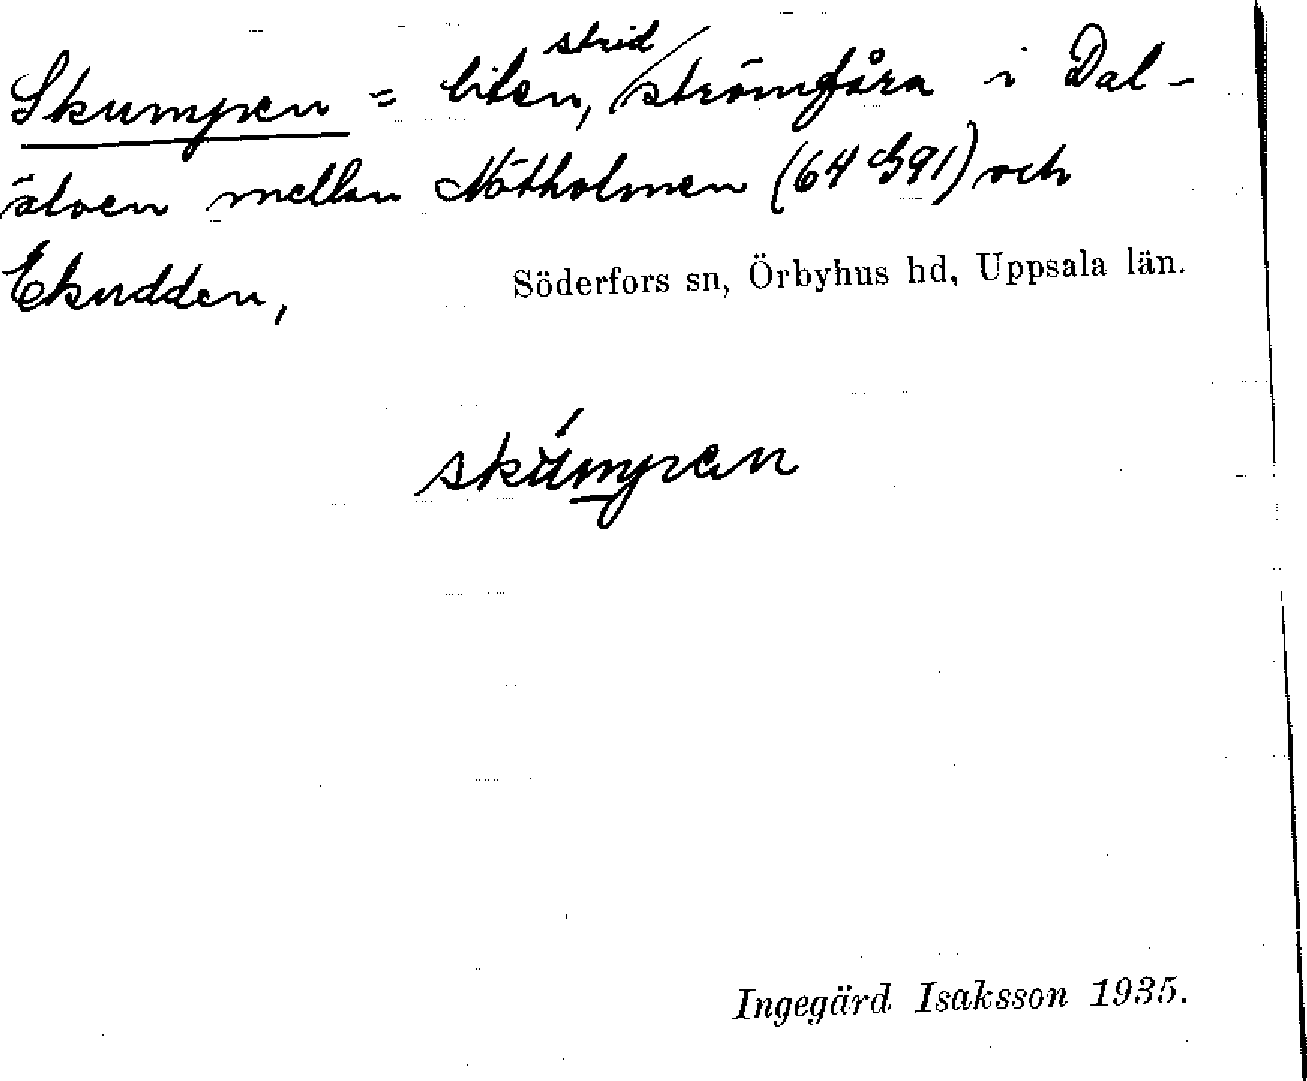 Skumpen = liten, strid strömfåra i Dal-
älven mellan Nötholmen (64 G91) och
Ekudden,
Söderfors sn, Örbyhus hd, Uppsala län.
skúmpen
Ingegärd Isaksson 1935.